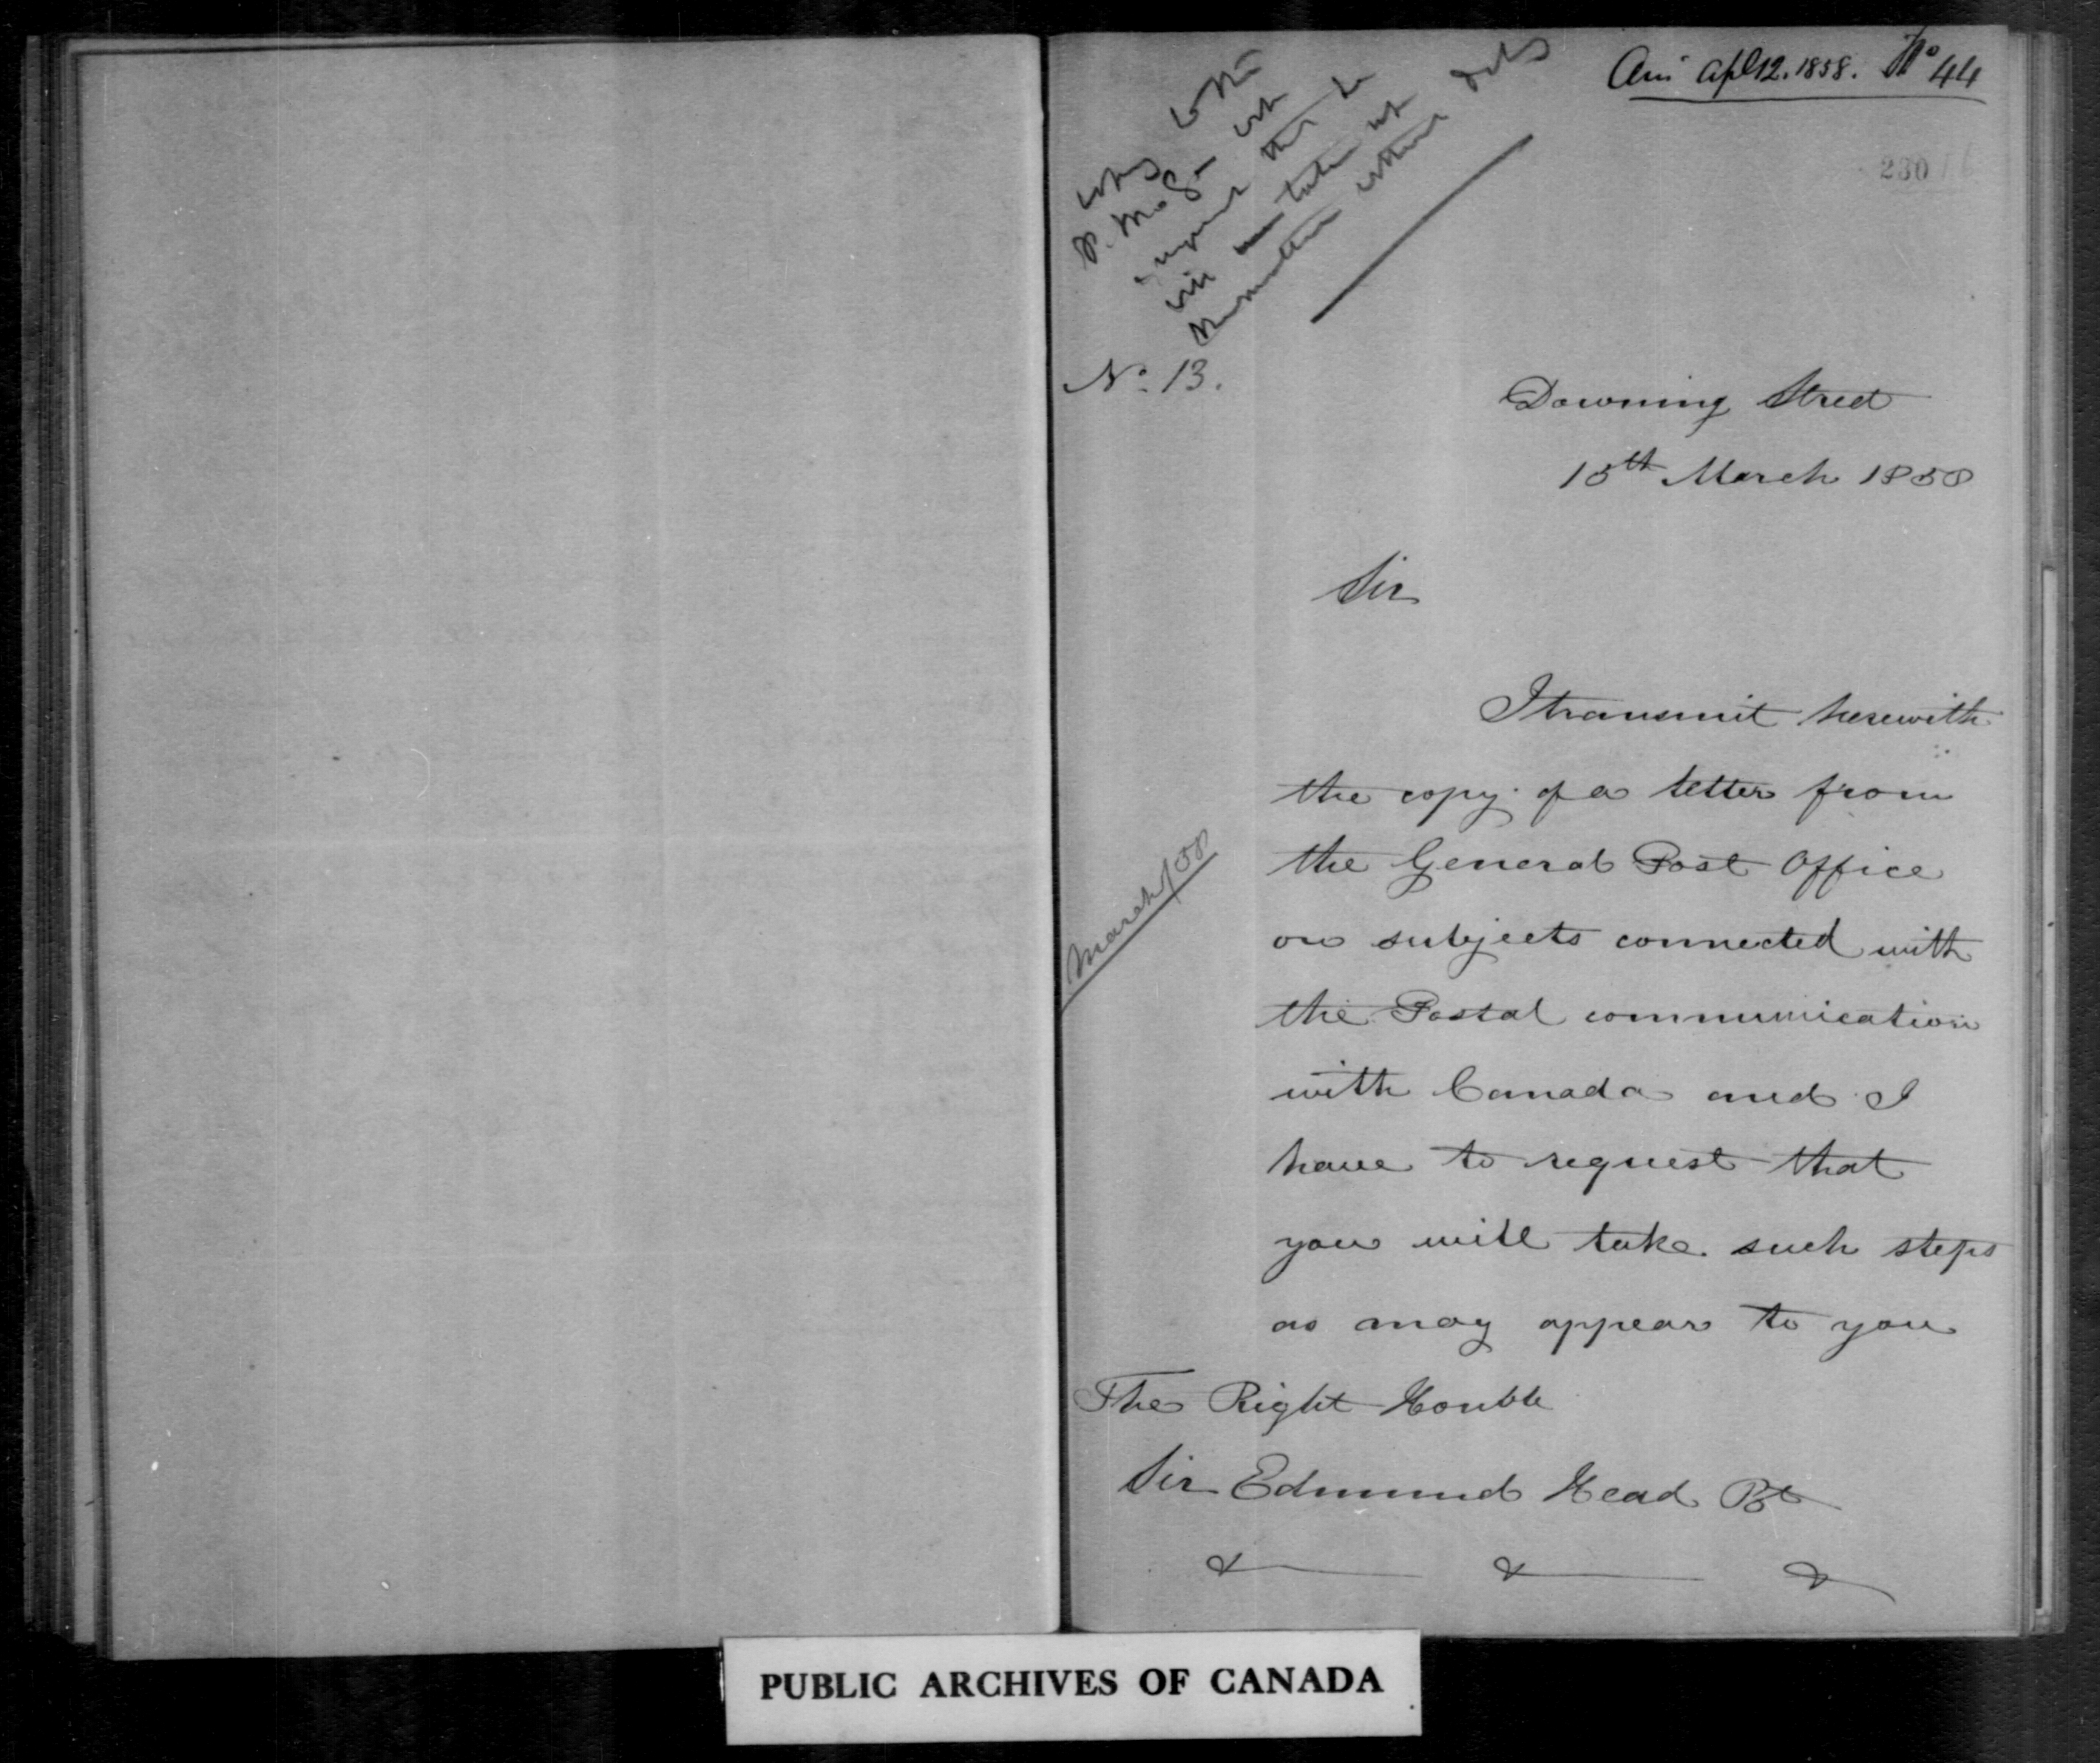 Apl 12. 1858. No 44
230
P. M. G.
No. 13.
Downing Street
15th March 1858
Sir
I transmit herewith
the copy of a letter from
the General Post Office
on subjects connected with
the Postal communication
with Canada and I
have to request that
you will take such steps
as may appear to you
March/58
The Right Honble
Sir Edmund Head Bt
& & &
PUBLIC ARCHIVES OF CANADA